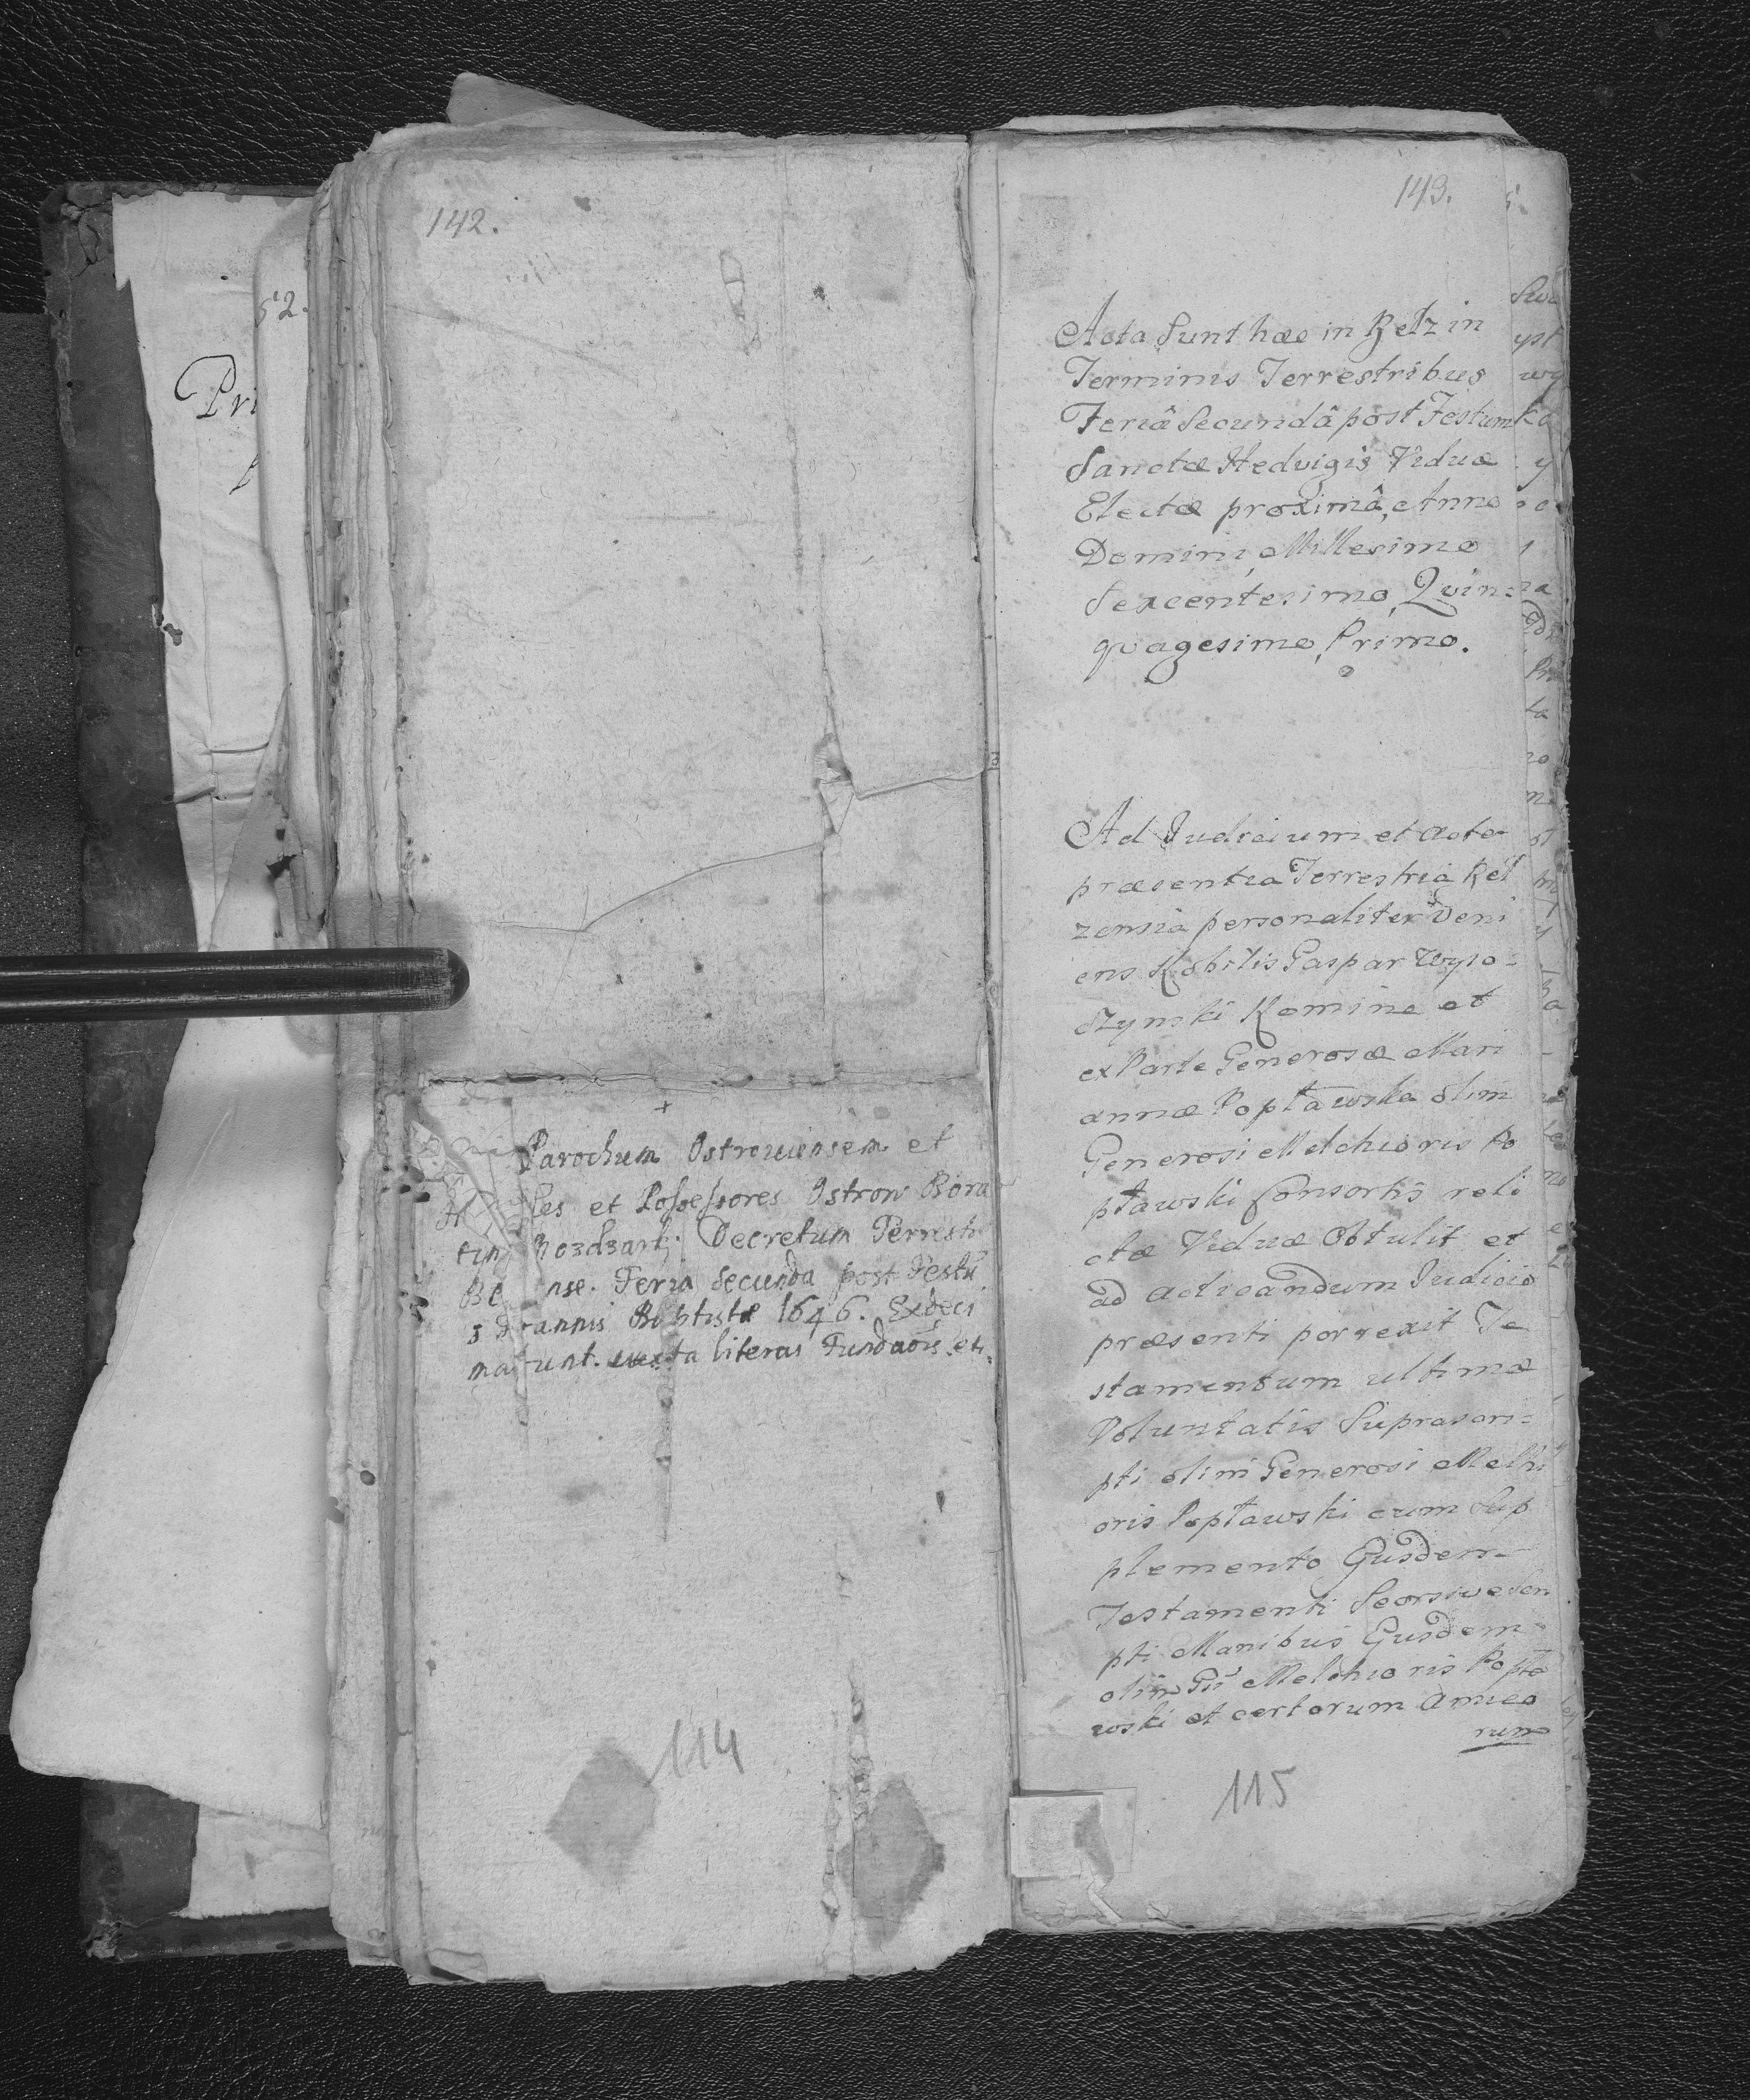 142.
52.
Pri
Parochum Ostroviensem et
les et Possessores Ostrow Bora
tyn Rozdzarty Decretum Terrestr
Be nse. Feria Secunda post Festū
annis Baptistæ 1646. Ex deci
ma runt. iuxta literas Fundaōis. etc.
114
143.
Acta Sunt hæc in Belz in
Terminis Terrestribus
Feriâ Secundâ post Festum
Sanctæ Hedvigis Viduæ
Electæ proximâ, Anno
Domini, Millesimo
Sexcentesimo, Quin=
quagesimo, Primo.
Ad Judicium et Acta
præsentia Terrestria Bel
zensia personaliter Veni
ens Nobilis Gaspar Wyso=
czynski Nomine et
ex Parte Generosæ Mari
annæ Popławska olim
Generosi Melchioris Po
pławski Consortis reli
ctæ Viduæ Obtulit et
ad acticandum Iudicio
præsenti porrexit Te
stamentum ultimæ
Voluntatis Suprascri=
pti olim Generosi Melhi
oris Popławski cum Sup
plemento Eiusdem
Testamenti Seorsive Scri
pti Manibus Eiusdem
olim Gsi Melchioris Popła
wski et certorum Amico
rum
115